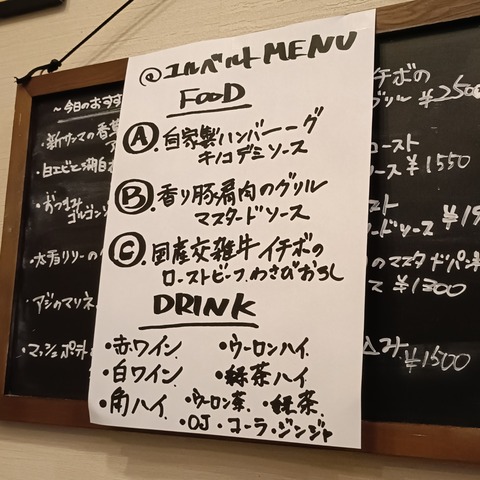 @ユルベルトMENU
FOOD
A. 自家製ハンバーーグ
キノコデミソース
B. 香り豚肩肉のグリル
マスタードソース
C. 国産交雑牛イチボの
ローストビーフ.わさびおろし
DRINK
・赤ワイン ・ウーロンハイ
・白ワイン ・緑茶ハイ
・角ハイ ・ウーロン茶 ・緑茶
・OJ・コーラ・ジンジャ
〜今日のおすす
・新サンマの香草
・白エビと
・おつまみ
ゴルゴンゾ
・アジのマリネ
・マッシュポテト
イチボの
グリル ¥2500
ロースト
ース ¥1550
スト
ードソース
のマスタードパン
¥1300
み
¥1500